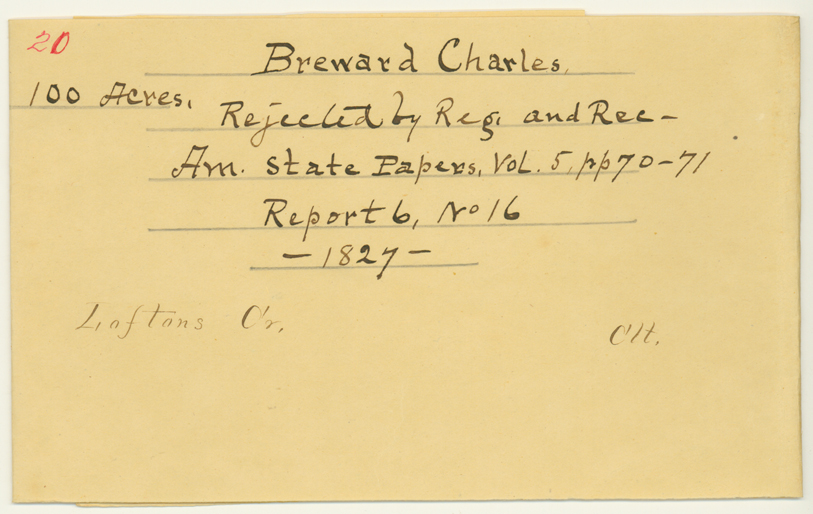 20
Breward Charles.
100 Acres.
Rejected by Reg. and Rec-
Am. State Papers, Vol. 5, pp 70-71
Report 6, No 16
- 1827 -
Loftons Cr.
Clt.